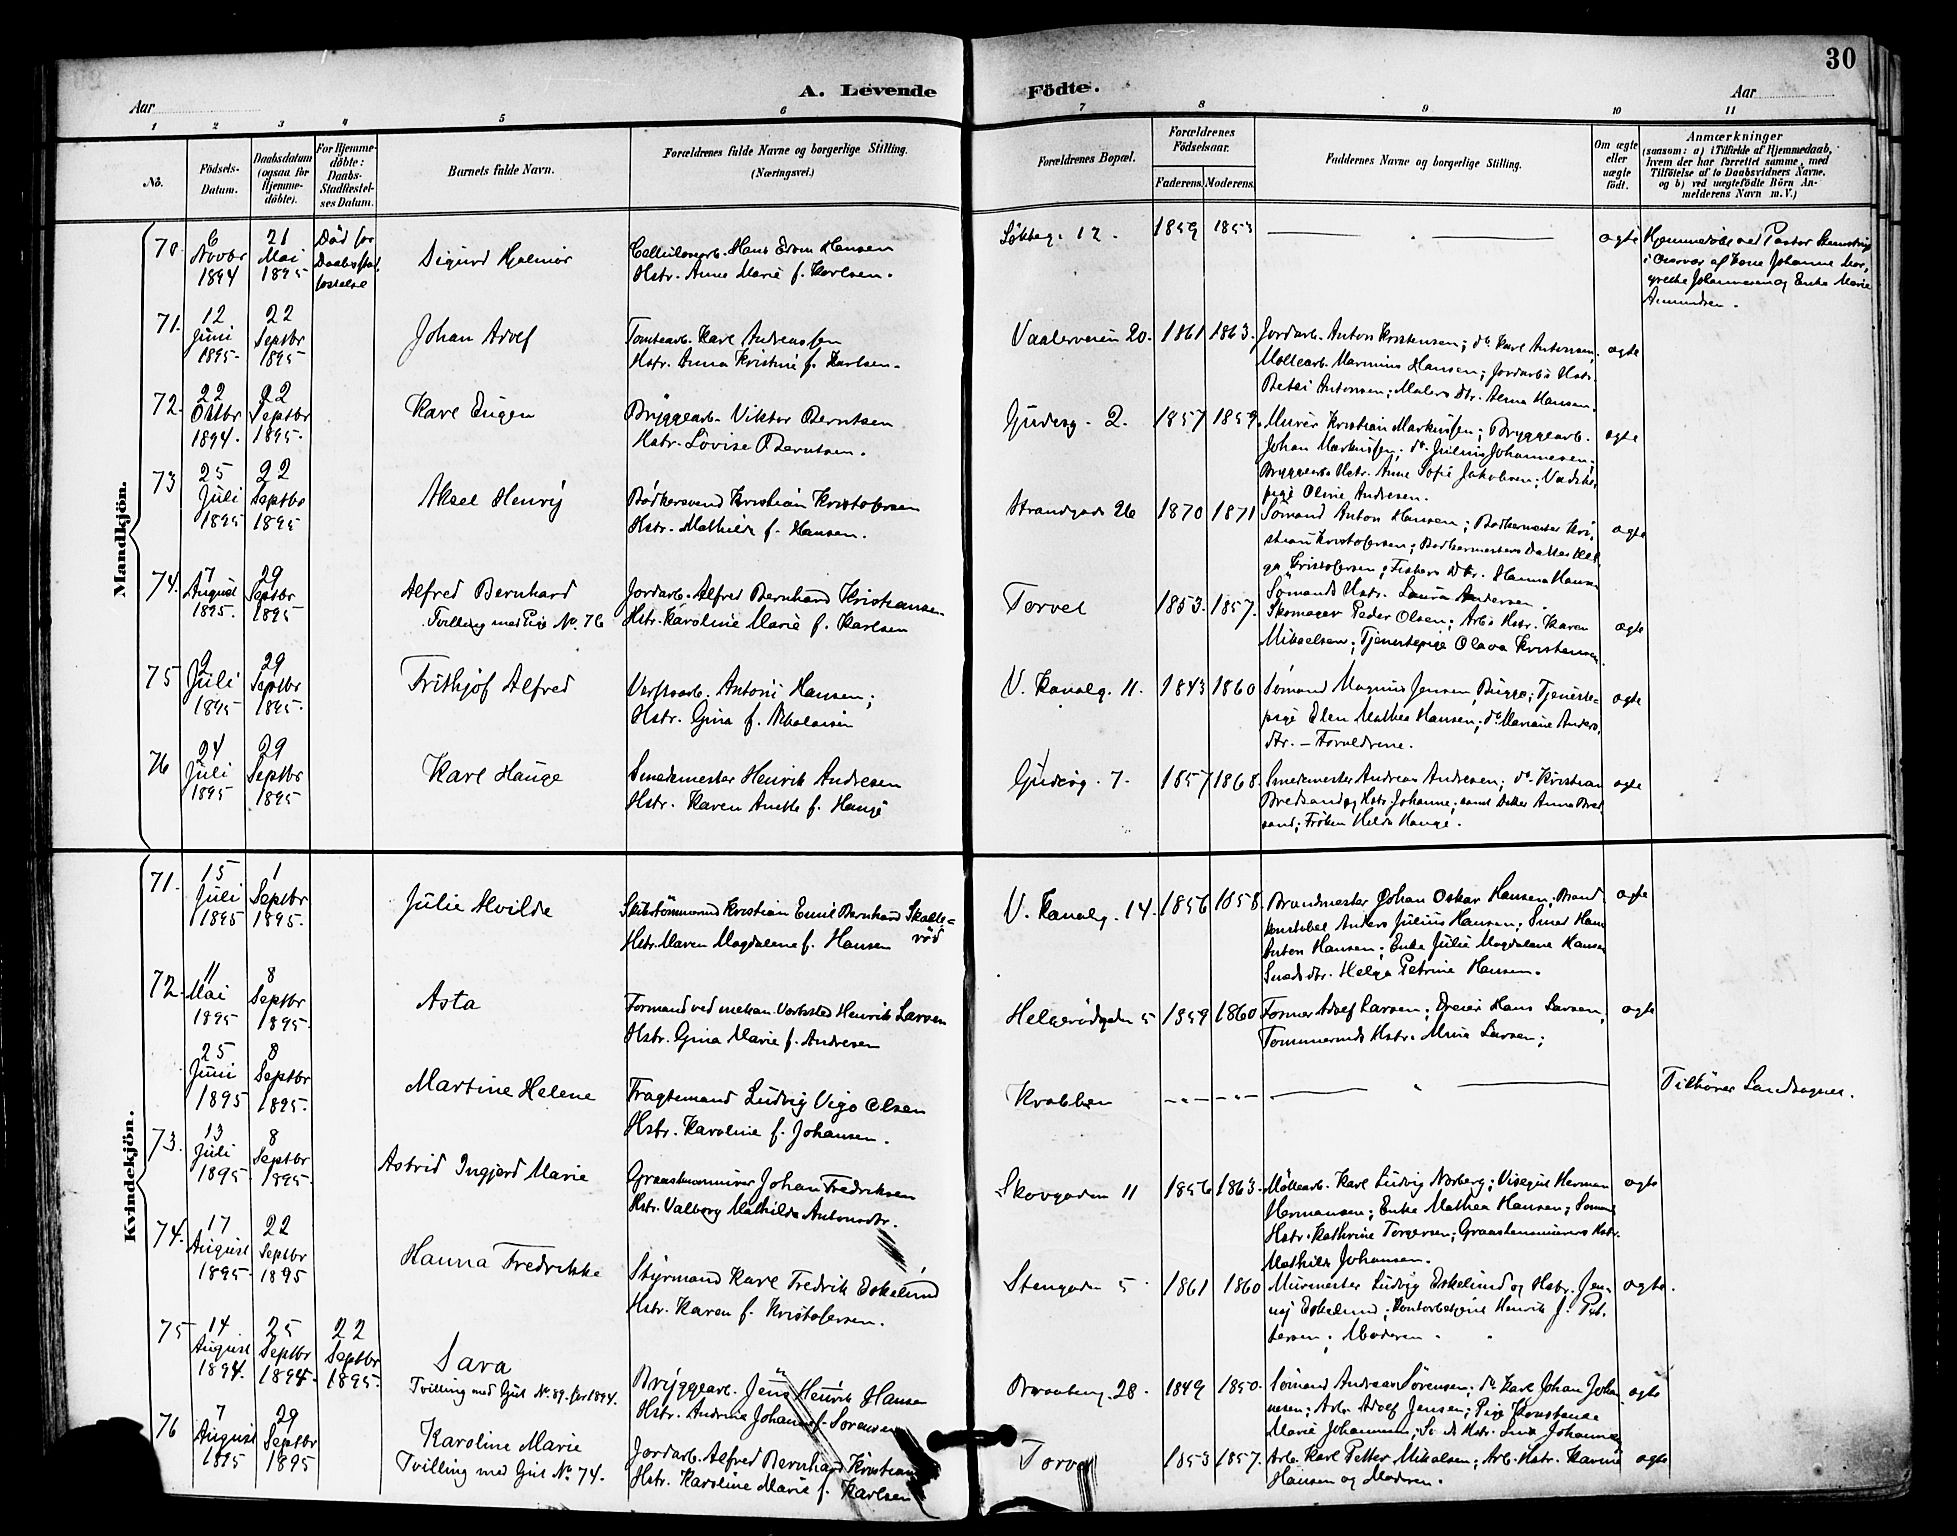 30
A. Levende Födte.
Aar
Aar
1 2 3 4 5 6 7 8 9 10 11
No.
Födsels-
Datum.
Daabsdatum
(ogsaa for
Hjemme-
döbte).
For Hjemme-
döbte:
Daabs-
Stadfæstel-
ses Datum.
Barnets fulde Navn.
Forældrenes fulde Navne og borgerlige Stilling.
(Næringsvei.)
Forældrenes Bopæl.
Forældrenes
Födselsaar.
Faderens.
Moderens.
Faddernes Navne og borgerlige Stilling.
Om ægte
eller
uægte
födt.
Anmærkninger
(saasom: a) i Tilfælde af Hjemmedaab,
hvem der har forrettet samme, med
Tilföielse af to Daabsvidners Navne,
og b) ved uægtefödte Börn An-
melderens Navn m. V.)
Mandkjön.
70. 6 Novbr 1894
21 Mai 1895
Död før
Daabsstad
fæstelse
Sigurd Hjalmar
Cellulosearb. Hans Hansen
Hstr. Anne Marie f. Karlsen.
12. 1859 1853
ægte
Hjemmedöbt ved Pastor
i af Kone Johanne Mar,
grethe Johannesen og Enke Marie
Amundsen.
71. 12 Juni 1895.
22 Septbr 1895
Johan Adolf
Tomtearb. Karl Andreassen
Hstr. Anna Kristine f. Karlsen.
Vaalerveien 20. 1861 1863.
Jordarb. Anton Kristensen; do Karl Antonsen.
Möllearb. Marinius Hansen; Jordarb.s Hstr.
Betsi Antonsen; Malers Dtr. Hansen.
ægte
72. 22 Oktbr 1894.
22 Septbr 1895.
Karl Eugen
Bryggearb. Viktor Berntsen
Hstr. Lovise Berntsen.
2. 1857 1859.
Murer Kristian Markussen; Bryggearb.
Johan Markussen; do Julius Johannesen;
Bryggearbs Hstr. Anne Sofie Jakobsen;
pige Oline Andresen.
ægte
73 25 Juli 1895
22 Septbr 1895
Aksel Henry
Bödkersvend Kristian Kristofersen
Hstr. Mathilde f. Hansen.
Strandgade 26 1870 1871
Sömand Anton Hansen; Bödkermester Kri,
stian Kristofersen; Bödkermesters Datter Hel
ga Kristofersen; Fiskers Dtr. Hanna Hansen
Sömands Hstr. Laura Andersen.
ægte
74. 7 August 1895.
29 Septbr 1895
Alfred Bernhard
Tvilling med Pige No. 76
Jordarb. Alfred Bernhard Kristiansen
Hstr. Karoline Marie f. Karlsen
Torvet 1853. 1857.
Skomager Peder Olsen; Arb.s Hstr. Karen
Mikaelsen; Tjenestepige Olava Kristensen.
ægte
75 2 Juli 1895
29 Septbr 1895.
Frithjof Alfred
Verftsarb. Antoni Hansen;
Hstr. Gina f. Nikolaisen
V. Kanalg. 11. 1843 1860.
Sömand Magnus Jensen Bugge; Tjeneste-
pige Elen Mathea Hansen; do Mariane Anders,
dtr. – Forældrene.
ægte
76 24 Juli 1895
29 Septbr 1895
Karl Hauge
Smedemester Henrik Andresen
Hstr. Karen Anette f. Hauge
7. 1857 1868.
Smedemester Andreas Andresen; do Kristian
Bredsand og Hstr. Johanne; samt Datter Anna Bred
sand; Fröken Hilda Hauge.
ægte
Kvindekjön.
71. 15 Juli 1895
1 Septbr 1895.
Julie Hvilde
Skibstömmermd Kristian Emil Bernhard Skalle=
röd
Hstr. Maren Magdalene f. Hansen
V. Kanalg. 14. 1856 1858.
Brandmester Johan Oskar Hansen; Brand
konstabel Anders Julius Hansen; Smed Hans
Anton Hansen; Enke Julie Magdalene Hansen
Smeds dtr. Helga Petrine Hansen.
ægte
72. 11 Mai 1895
8 Septbr 1895.
Asta
Formand ved mekan. Værksted Henrik Larsen
Hstr. Gina Marie f. Andresen
Helgerödgaden 5 1859 1860
Former Adolf Larsen; Dreier Hans Larsen;
Tömmermds Hstr. Mina Larsen;
ægte
25 Juni 1895
8 Septbr 1895.
Martine Helene
Fragtemand Ludvig Vigo Olsen
Hstr. Karoline f. Johansen.
Krabben
Tilhörer Landsognet.
73. 13 Juli 1895
8 Septbr 1895.
Astrid Ingjerd Marie
Graastensmurer Johan Fredriksen
Hstr. Valborg Mathilde Antonsdtr.
Skovgaden 11 1856 1863.
Möllearb. Karl Ludvig Norberg; Visegut Herman
Hermansen; Enke Mathea Hansen; Sömds
Hstr. Kathrine Torgersen; Graastensmurers Hstr.
Mathilde Johansen.
ægte
74. 17 August 1895.
22 Septbr 1895
Hanna Fredrikke
Styrmand Karl Fredrik Eskelund
Hstr. Karen f. Kristofersen.
Stengaden 5 1861 1860
Murmester Ludvig Eskelund og Hstr. Jen-
ny Eskelund; Kontorbetjent Henrik J. Pet-
tersen; Moderen.
ægte.
75 14. August 1894.
25 Septbr 1894.
22 Septbr 1895.
Sara
Tvilling med Gut No. 89. for 1894.
Bryggearb. Jens Henrik Hansen
Hstr. Andrine Johanne f. Sörensen
28. 1849 1850.
Sömand Andreas Sörensen; do Karl Johan Johan
nesen; Arb. Adolf Jensen; Pige Konstance
Marie Johannesen; Hstr. Johannes
ægte
76 7 August 1895
29 Septbr 1895
Karoline Marie
Tvilling med Gut No. 74.
Jordarb. Alfred Bernhard Kristian
Hstr. Karoline Marie f. Karlsen
Torvet 1853 1857.
Arb. Karl Petter Mikalsen; Arb. Hstr. Karine
Hansen og Moderen.
ægte